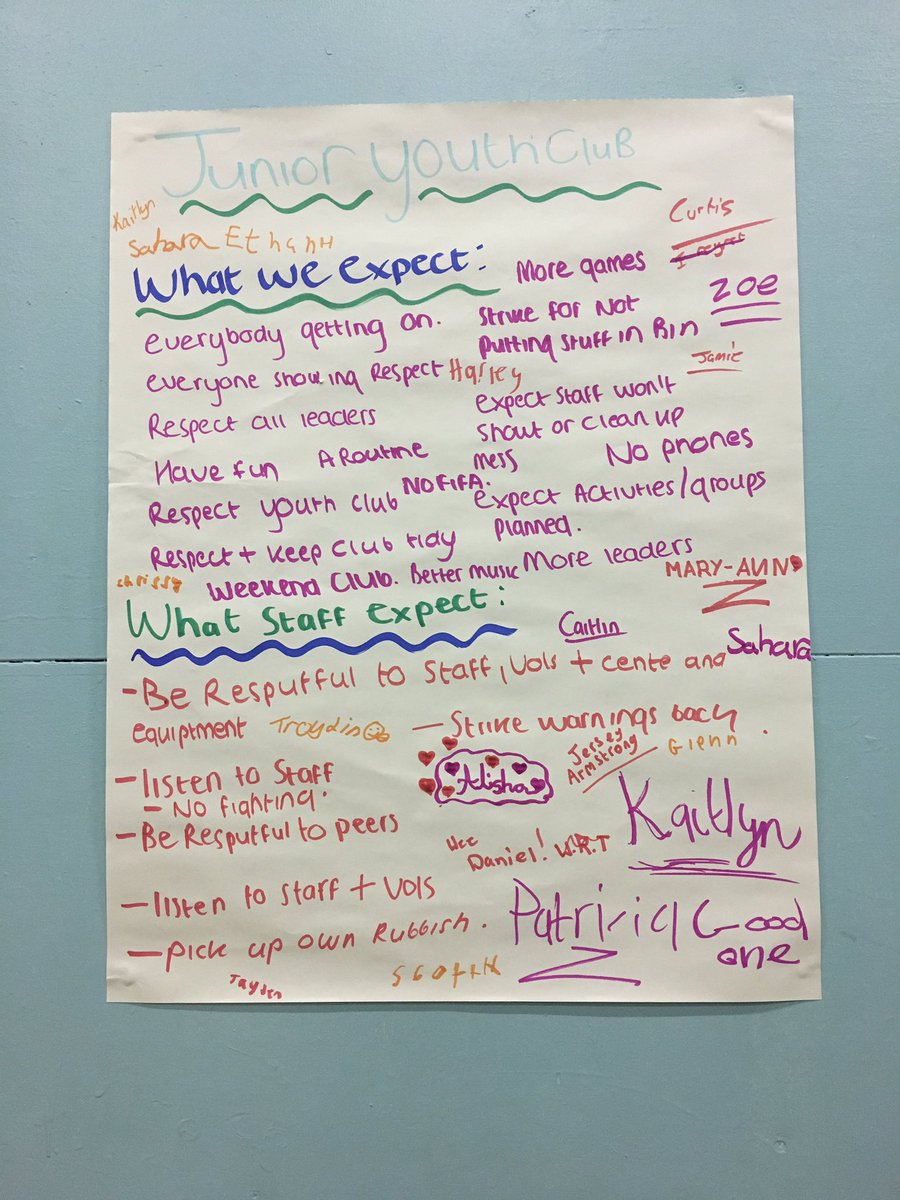 Junior Youth Club
Kaitlyn
Curtis
Sahara Ethan H
What we expect:
More games
Zoe
everybody getting on.
Strike for Not
Putting stuff in Bin
Jamie
everyone showing Respect
Harley
Respect all leaders
expect staff won't
shout or clean up
mess
No phones
Have fun
A Routine
Respect youth club
NO FIFA.
expect Activties/groups
planned.
Respect + keep club tidy
More leaders
Weekend Club.
Better music
chrissy
MARY-ANN
What Staff expect:
Caitlin
Sahara
- Be Resputful to Staff, Vols + cente and
equiptment
Troydin
- Strike warnings back
Jersey
Armstrong
Glenn
- listen to Staff
- No fighting.
Alisha
- Be Resputful to peers
Kaitlyn
Wee
Daniel! W.R.T
- listen to staff + Vols
Patricia
Good
one
- pick up own Rubbish.
Jayden